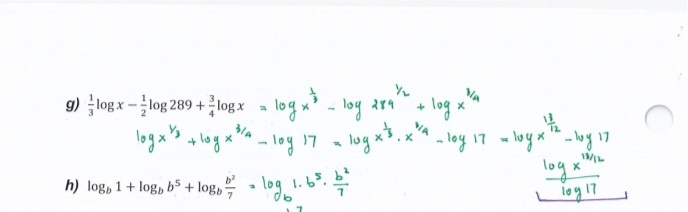 g) 1/3 log x − 1/2 log 289 + 3/4 log x = log x^1/3 − log 289^1/2 + log x^3/4
log x^1/3 + log x^3/4 − log 17 = log x^1/3 · x^3/4 − log 17 = log x^13/12 − log 17
log x^13/12 / log 17
h) log_b 1 + log_b b^5 + log_b b^2/7 = log_b 1 · b^5 · b^2/7